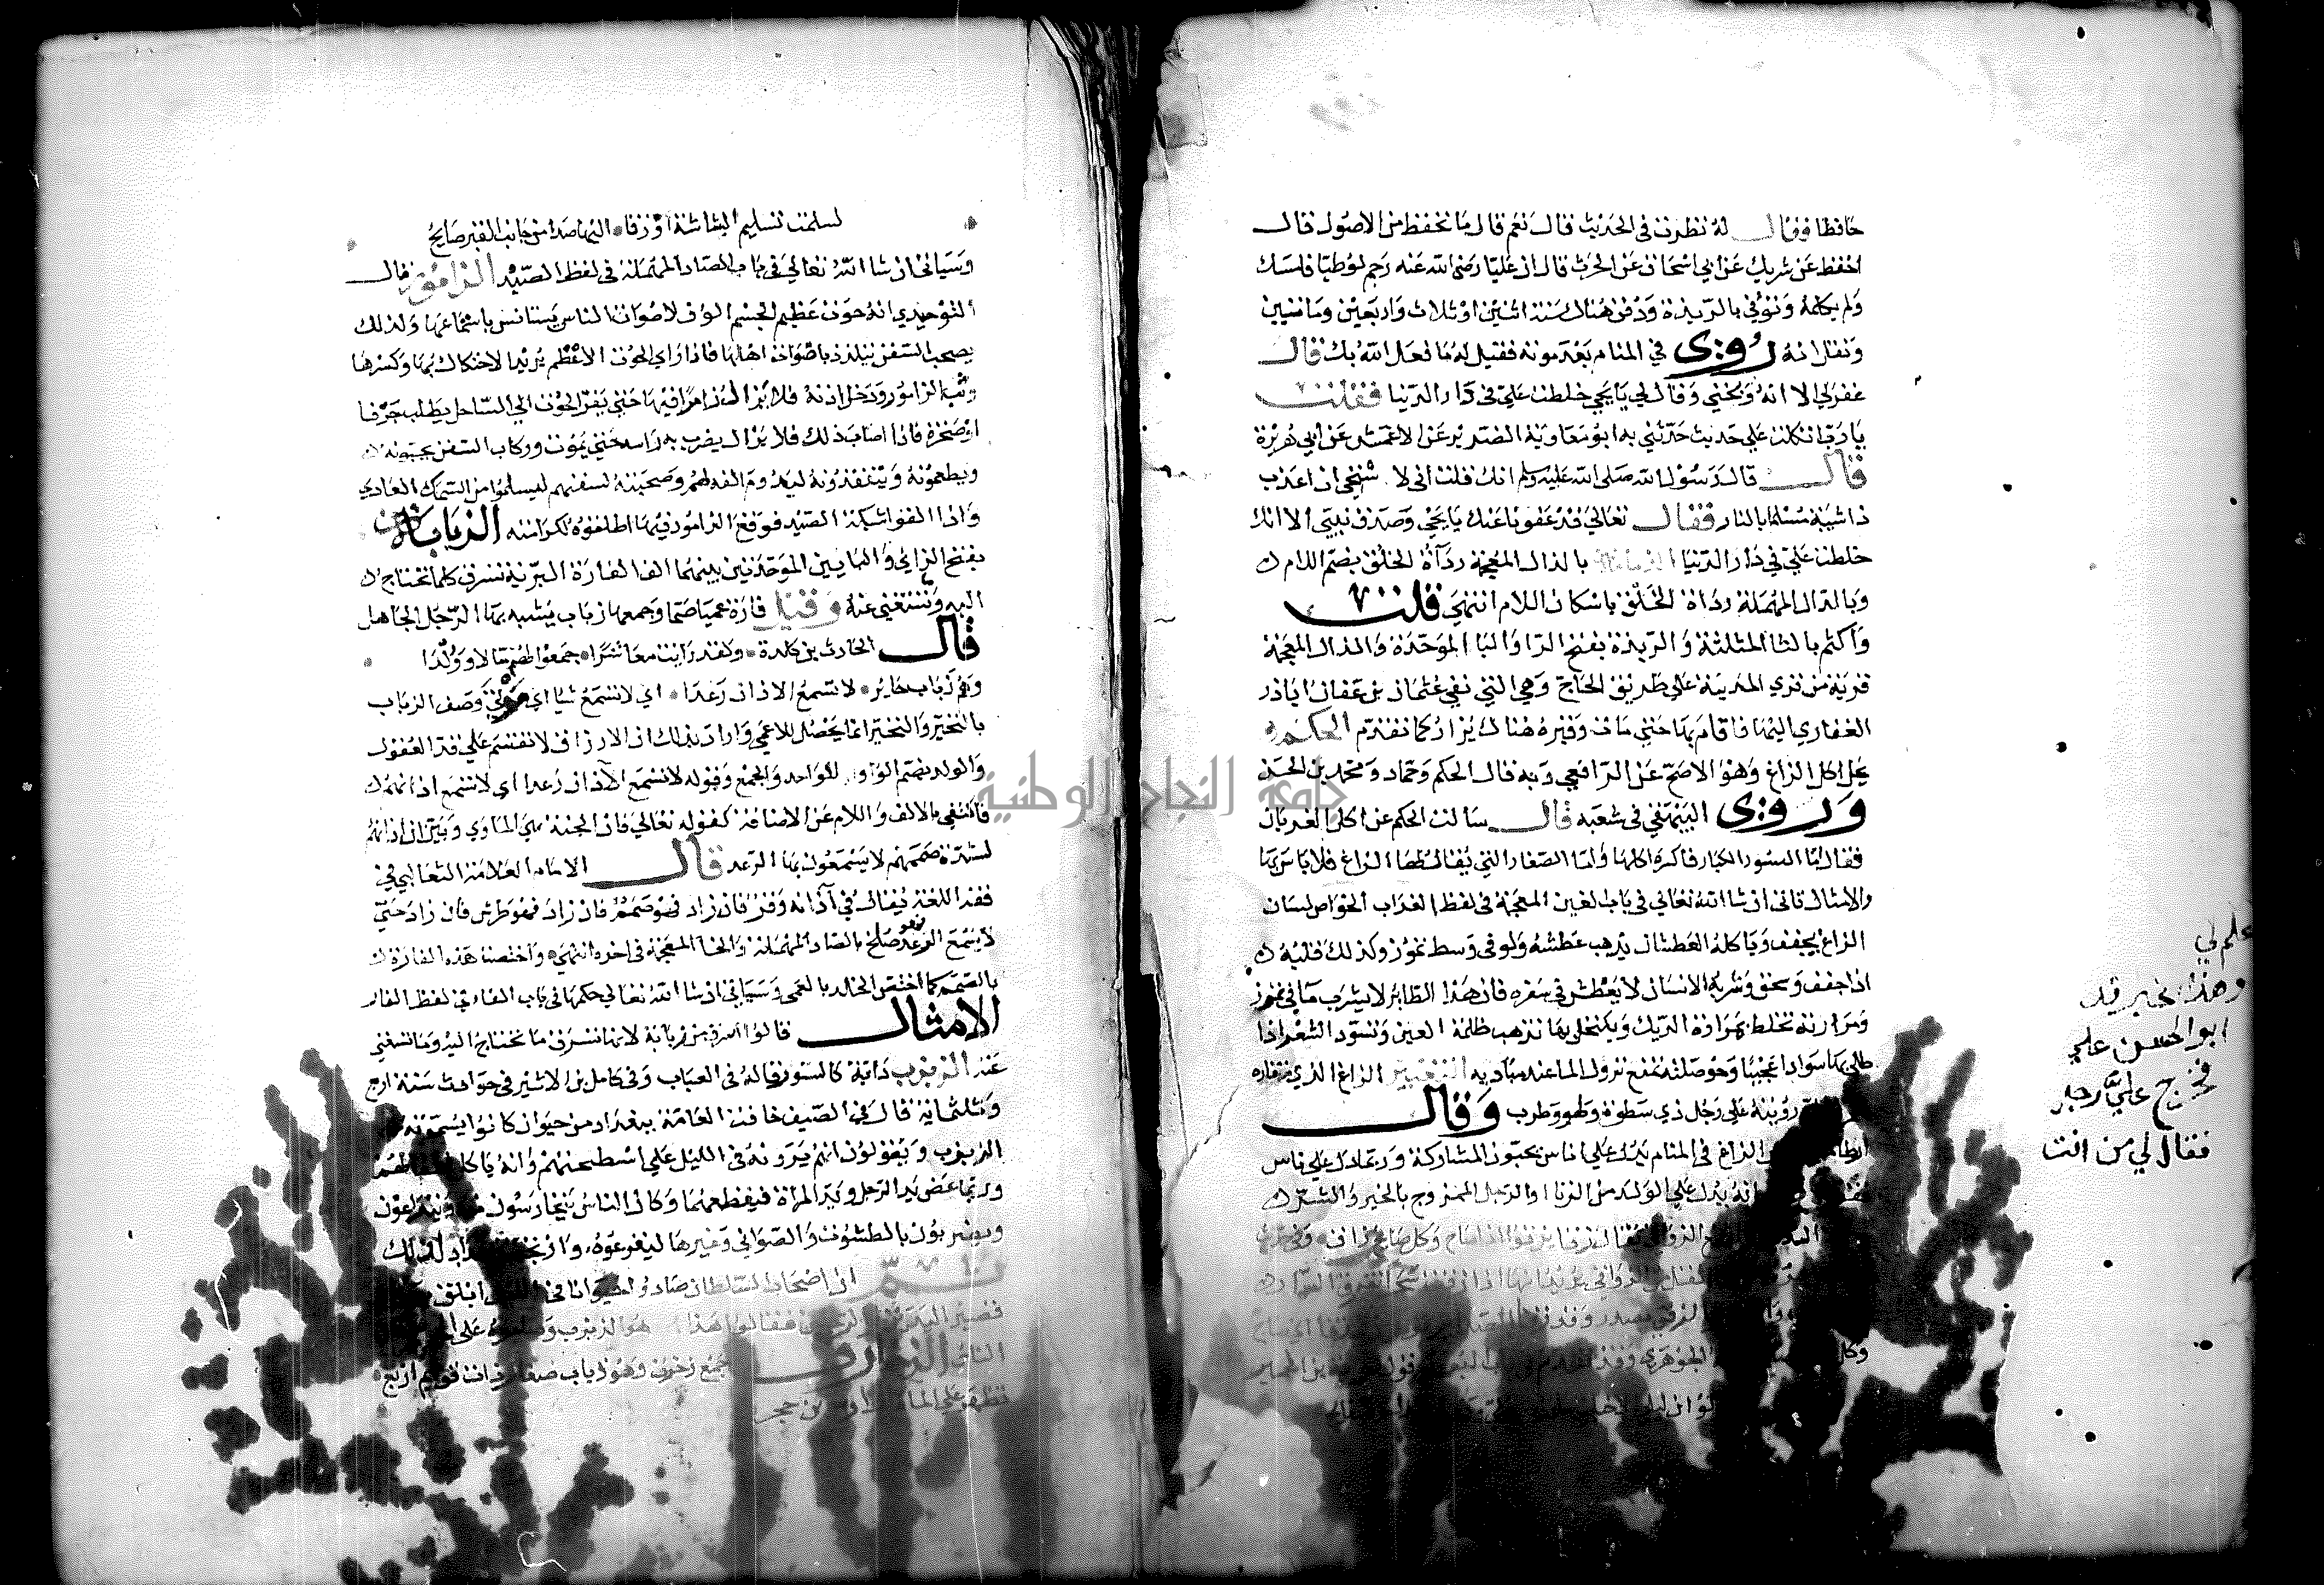 حافظا فقال له نظرت في الحديث قال نعم قال ما تحفظ من الاصول قال
احفظ عن شريك عن ابي اسحاق عن الحرث قال ان عليا رضي الله عنه رجم لوطيا فامسك
ولم يكلمه وتوفي بالربذة ودفن هناك سنة اثنين او ثلاث واربعين ومائتين
ونقل انه روي في المنام بعد موته فقيل له ما فعل الله بك قال
غفر لي الا انه وبخني وقال لي يا يحيى خلطت علي في دار الدنيا فقلت
يا رب اتكلت علي حديث حدثني به ابو معاوية الضرير عن الاعمش عن ابي هريرة
قال قال رسول الله صلى الله عليه وسلم انك قلت اني لا ستحي ان اعذب
ذا شيبة مسلما بالنار فقال تعالي قد عفوت عنك يا يحيى وصدق نبيي الا انك
خلطت علي في دار الدنيا بالذال المعجمة رداة الخلق بضم اللام
وبالدال المهملة رداة الخلق باسكان اللام انتهى قلت
واكثم بالثا المثلثة والربذة بفتح الرا والبا الموحدة والذال المعجمة
قرية من قري المدينة علي طريق الحاج وهي التي نفي عثمان بن عفان ابا ذر
الغفاري اليها فاقام بها حتي مات وقبره هناك يزار كما تقدم الحكم
يحل اكل الزاغ وهو الاصح عن الرافعي وبه قال الحكم وحماد ومحمد بن الحسن
وروي البيهقي في شعبه قال سالت الحكم عن اكل الغربان
فقال اما السود الكبار فاكره اكلها واما الصغار التي يقال لها الزاغ فلا باس بها
والامثال تاتي ان شا الله تعالي في باب الغين المعجمة في لفظ الغراب الخواص لسان
الزاغ يجفف وياكله العطشان يذهب عطشه ولو في وسط تموز وكذلك قلبه
اذا جفف وسحق وشربه الانسان لا يعطش في سفره فان هذا الطاير لا يشرب ما في تموز
ومرارته تخلط بمرارة الديك ويكتحل بها تذهب ظلمة العين وتسود الشعر اذا
طلي بها سوادا عجيبا وحوصلته تمنع نزول الما عند مباديه التعبير الزاغ الذي منقاره
رويته علي رجل ذي سطوة ولهو وطرب وقال
الزاغ في المنام يدل علي اناس يحبون المشاركة وربما دل علي ناس
انه يدل علي الولد من الزنا والرجل الممزوج بالخير والشر
علم لي
وهذا خبر قد
ابو الحسن علي
فخرج علي رجل
فقال لي من انت
لسلمت تسليم البشاشة او زقا اليها صدا من جانب القبر صايح
وسياتي ان شا الله تعالي في باب الصاد المهملة في لفظ الصيد الزامور قال
التوحيدي انه حوت عظيم الجسم الوف لاصوات الناس يستانس باستماعها ولذلك
يصحب السفن يتلذذ باصوات اهلها فاذا راي الحوت الاعظم يريد الاحتكاك بها وكسرها
وثب الزامور ودخل اذنه فلا يزال زامرا فيها حتي يفر الحوت الي الساحل يطلب جرفا
او صخرة فاذا اصاب ذلك فلا يزال يضرب به راسه حتي يموت وركاب السفن يحبونه
ويطعمونه ويتفقدونه ليدوم الفه لهم وصحبته لسفنهم ليسلموا من السمك العادي
واذا القوا شبكة الصيد فوقع الزامور فيها اطلقوه لكرامته الزبابة
بفتح الزاي والبايين الموحدتين بينهما الف الفارة البرية تسرق كلما تحتاج
اليه وتستغني عنه وقيل فارة عميا صما وجمعها زباب يشبه بها الرجل الجاهل
قال الحارث بن كلدة ولقد رايت معاشرا جمعوا لهم مالا وولدا
وهم زباب حاير لا تسمع الاذان رعدا اي لا تسمع شيا اي وصف الزباب
بالتحير والتحير انما يحصل للاعمي واراد بذلك ان الارزاق لا تقسم علي قدر العقول
والولد بضم الواو للواحد والجمع وقوله لا تسمع الاذان رعدا اي لا تسمع اذانهم
فاكتفي بالالف واللام عن الاضافة كقوله تعالي فان الجنة هي الماوي وبين ان اذانهم
لشدة صممهم لا يسمعون بها الرعد قال الامام العلامة الثعالبي في
فقه اللغة يقال في آذانه وقر فان زاد فهو صمم فان زاد فهو طرش فان زاد حتي
لا يسمع الرعد فهو صلخ بالصاد المهملة والخا المعجمة في اخره انتهي واختصت هذه الفارة
بالصمم كما اختص الخلد بالعمي وسياتي ان شا الله تعالي حكمها في باب الفا في لفظ الفار
الامثال قالوا اسرق من زبابة لانها تسرق ما تحتاج اليه وما تستغني
عنه الزبزب دابة كالسنور قاله في العباب وفي كامل بن الاثير في حوادث سنة اربع
وثلثماية قال في الصيف خافت العامة ببغداد من حيوان كانوا يسمونه
الزبزب ويقولون انهم يرونه في الليل علي اسطحتهم وانه ياكل
وربما عض يد الرجل ويد المراة فيقطعهما وكان الناس يتحارسون منه ويتزاعقون
ويضربون بالطشوت والصواني وغيرها ليفزعوه وارتجت بغداد لذلك
ثم ان اصحاب السلطان صادوا حيوانا في الليل ابلق
فقالوا هذا هو الزبزب
جمع زخرف وهو ذباب صغار ذات قوايم اربع